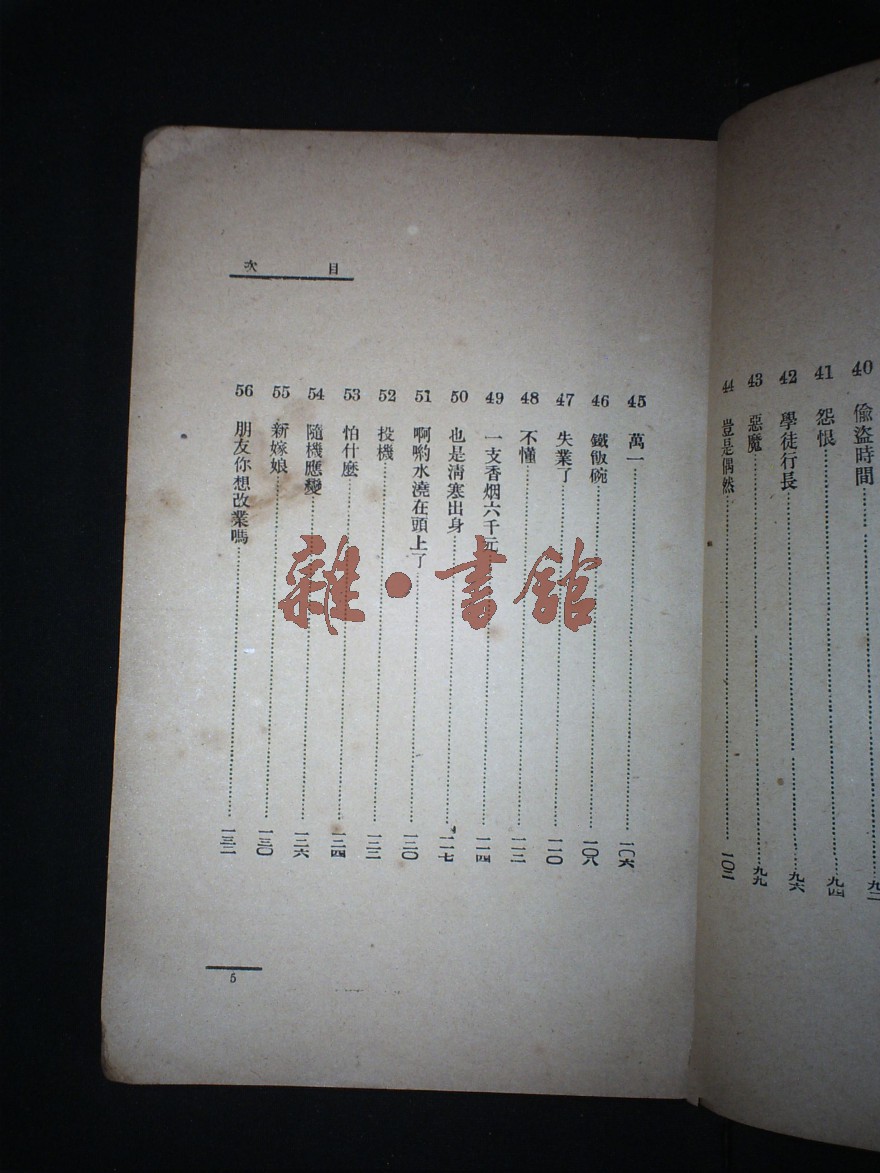 40 偷盜時間……九二
41 怨恨……九四
42 學徒行長……九六
43 惡魔……九九
44 豈是偶然……一〇二
目次
45 萬一……一〇六
46 鐵飯碗……一〇八
47 失業了……一一〇
48 不懂……一一二
49 一支香烟六千元……一一四
50 也是淸寒出身……一一七
51 啊喲水澆在頭上了……一二〇
52 投機……一二二
53 怕什麼……一二四
54 隨機應變……一二六
55 新嫁娘……一三〇
56 朋友你想改業嗎……一三二
5
雜·書館